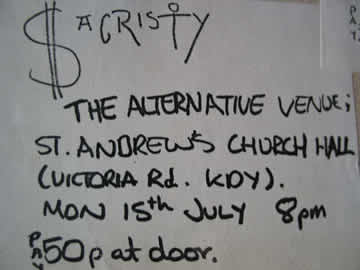 $ACRISTY
THE ALTERNATIVE VENUE;
ST. ANDREWS CHURCH HALL
(VICTORIA Rd. KDY).
MON 15th JULY 8pm
PAY 50p at door.